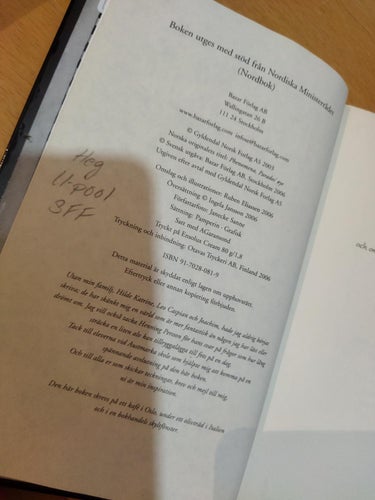 Boken utges med stöd från Nordiska Ministerrådet
(Nordbok)
Bazar Förlag AB
Wallingatan 26 B
111 24 Stockholm
www.bazarforlag.com info@bazarforlag.com
© Gyldendal Norsk Forlag AS 2003
Norska originalets titel: Phenomena, Paradiso
© Svensk utgåva: Bazar Förlag AB, Stockholm 2006
Utgiven efter avtal med Gyldendal Norsk Forlag AS
Omslag och illustrationer: Ruben Eliassen 2006
Översättning © Ingela Jansson 2006
Författarfoto: Janecke Sanne
Sättning: Pamperin Grafisk
Satt med AGaramond
Tryckt på Ensolux Cream 80 g/1,8
Tryckning och inbindning: Otavas Tryckeri AB, Finland 2006
ISBN 91-7028-081-9
Detta material är skyddat enligt lagen om upphovsrätt.
Eftertryck eller annan kopiering förbjuden.
Utan min familj, Hilde Katrine, Leo Caspian och Joachim, hade jag aldrig börjat
skriva; de har skänkt mig en värld som är mer fantastisk än någon jag har läst eller
drömt om. Jag vill också tacka Henning Persson för hans svar på frågor som hur lång
sträcka en liten alv kan tillryggalägga till fots på en dag.
Tack till eleverna vid Austmarka skole som hjälpte mig att komma på en
spännande avslutning på den här boken.
Och till alla er som skickar teckningar, brev och mejl till mig.
ni är min inspiration.
Den här boken skrevs på ett kafé i Oslo, under ett olivträd i Italien
och i en bokhandels skyltfönster.
Heg
4-POOL
3FF